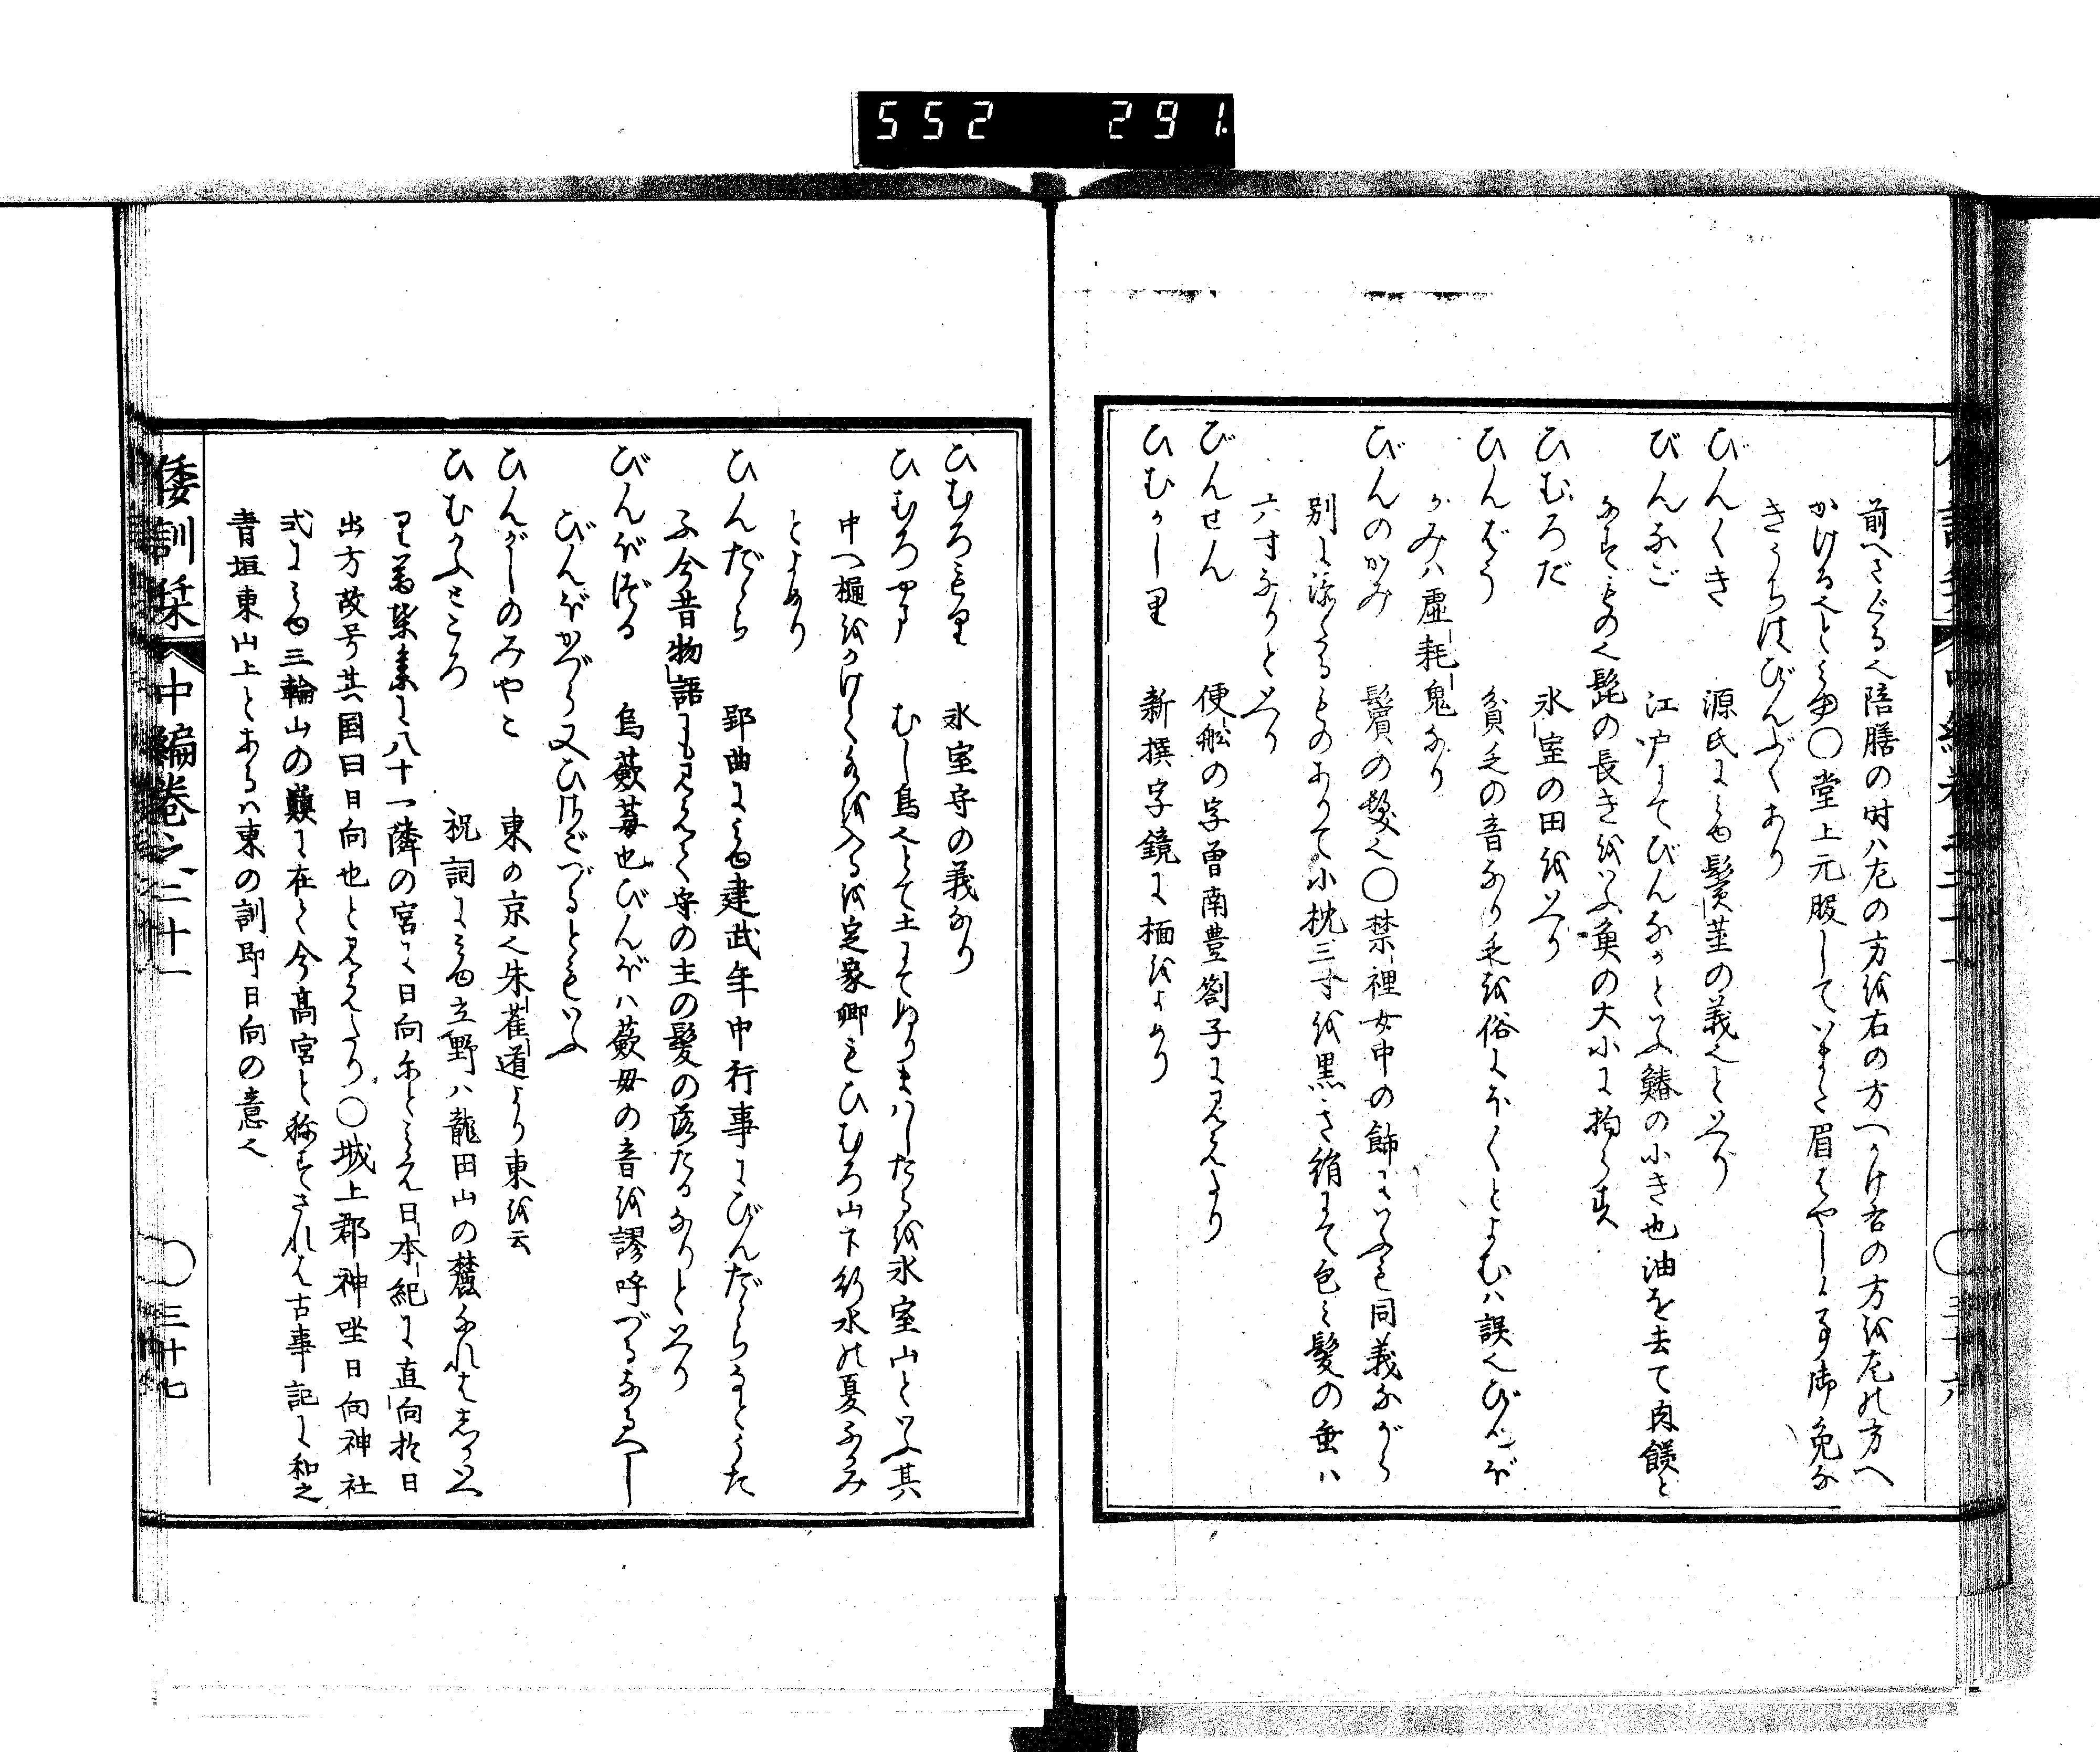 552 291.
前へさぐる也陪膳の时ハ左の方を右の方へかけ右の方を左の方へ
かける也とみゆ〇堂上元服していまた眉はやしる事御免な
きうちはびんぶくあり
びんくき 源氏にみゆ鬢茎の義也といへり
びんなご 江戸にてびんながといふ鰆の小き也油を去て肉饌と
なすもの也髭の長きをいふ魚の大小に拘らす
ひむろだ 氷室の田をいへり
ひんばう 貧乏の音なり乏を俗にぼくとよむハ誤也びんぼ
がみハ虚耗鬼なり
びんのかみ 鬢の髪也〇禁裡女中の飾にいふも同義ながら
別に添くるものありて小枕三寸を黒き絹にて包み髪の垂ハ
六寸なりといへり
びんせん 便舩の字曽南豊劄子に見えたり
ひむかし里 新撰字鏡に楐をよめり
ひむろもり 氷室守の義なり
ひむろやま むし鳥也とて土にてぬりまハしたるを氷室山といふ其
中へ樋をかけて水を入るを定家卿もひむろ山下行水の夏ふかみ
とよめり
ひんだゝら 郢曲にみゆ建武年中行事にびんだゝらなとうた
ふ今昔物語にも見えて守の主の髪の落たるなりといへり
びんぼづる 烏蘞苺也びんぼハ蘞母の音を謬呼づるなるへし
びんぼかづら又ひぼづるともいふ
ひんがしのみやこ 東の京也朱雀道より東を云
ひむかふところ 祝詞にみゆ立野ハ龍田山の麓なれはしかいへ
り万葉集に八十一隣の宮に日向尓とみえ日本紀に直向於日
出方故号其国曰日向也と見えたり〇城上郡神坐日向神社
式にみゆ三輪山の嶺に在て今高宮と称すされは古事記に和之
青垣東山上とあるハ東の訓即日向の意也
倭訓栞 中編巻之二十一 〇三十七